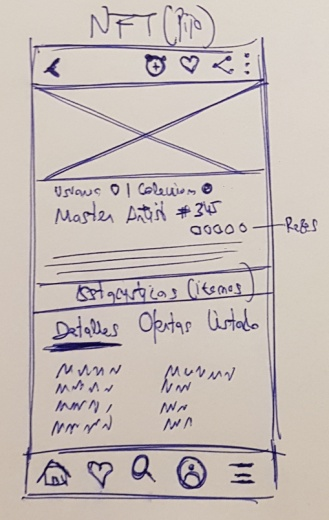 NFT (Pipo)
Usuario | Coleccion
Master Artist #345
Redes
Estadisticas (items)
Detalles Ofertas Listado